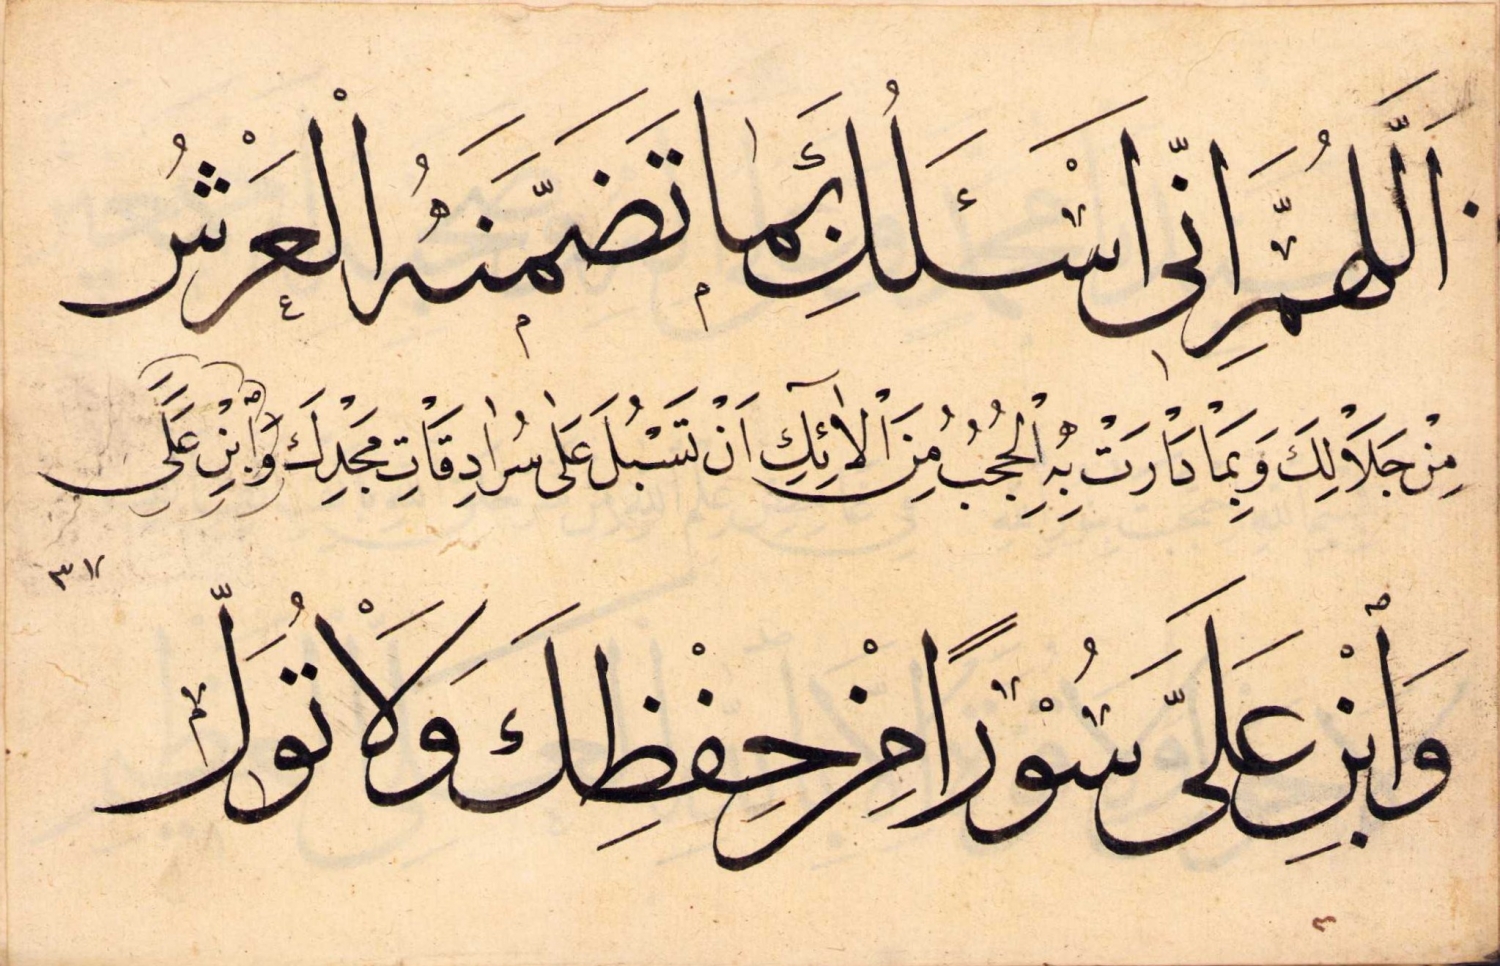 اَللّٰهُمَّ اِنّى اَسْئَلُكَ بِمَا تَضَمَّنَهُ الْعَرْشُ
مِنْ جَلَالِكَ وَبِمَا دَارَتْ بِهِ الْحُجُبُ مِنَ الْاٰلائِكَ اَنْ تَسْبُلَ عَلٰى سُرَادِقَاتِ مَجْدِكَ وَابْنِ عَلَىَّ
٣٧
وَابْنِ عَلَىَّ سُوْرًا مِنْ حِفْظِكَ وَلَا تُوَلِّ